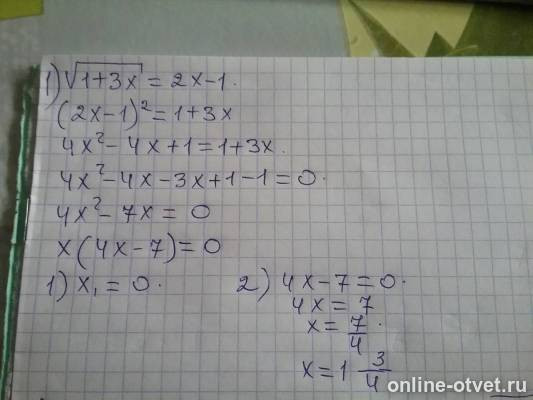 1) √1+3x = 2x-1.
(2x-1)² = 1+3x
4x²-4x+1=1+3x.
4x²-4x-3x+1-1=0.
4x²-7x=0
x(4x-7)=0
1) x₁=0.
2) 4x-7=0.
4x=7
x=7/4.
x=1 3/4
online-otvet.ru